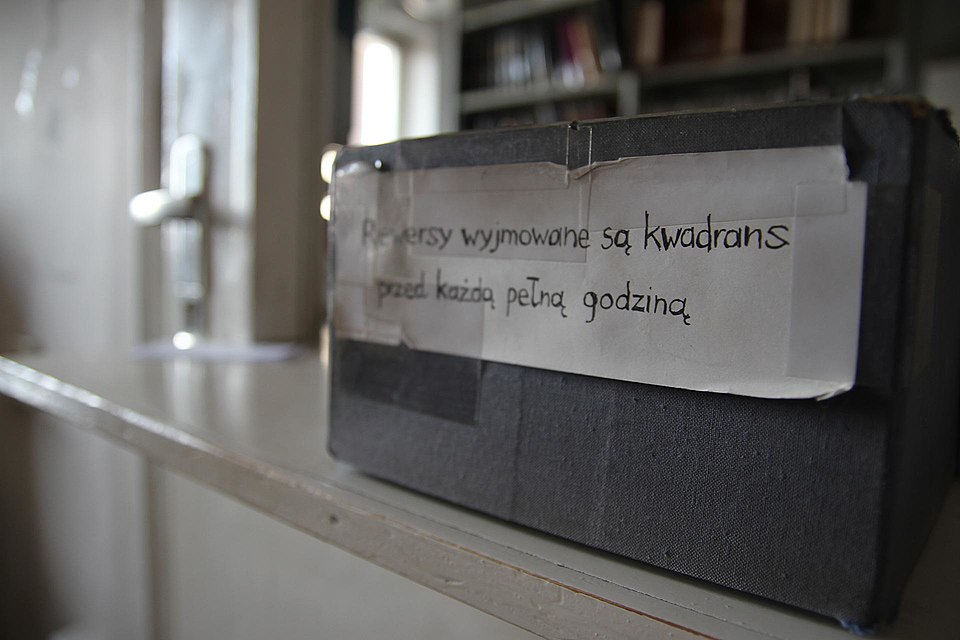 Rewersy wyjmowane są kwadrans
przed każdą pełną godziną